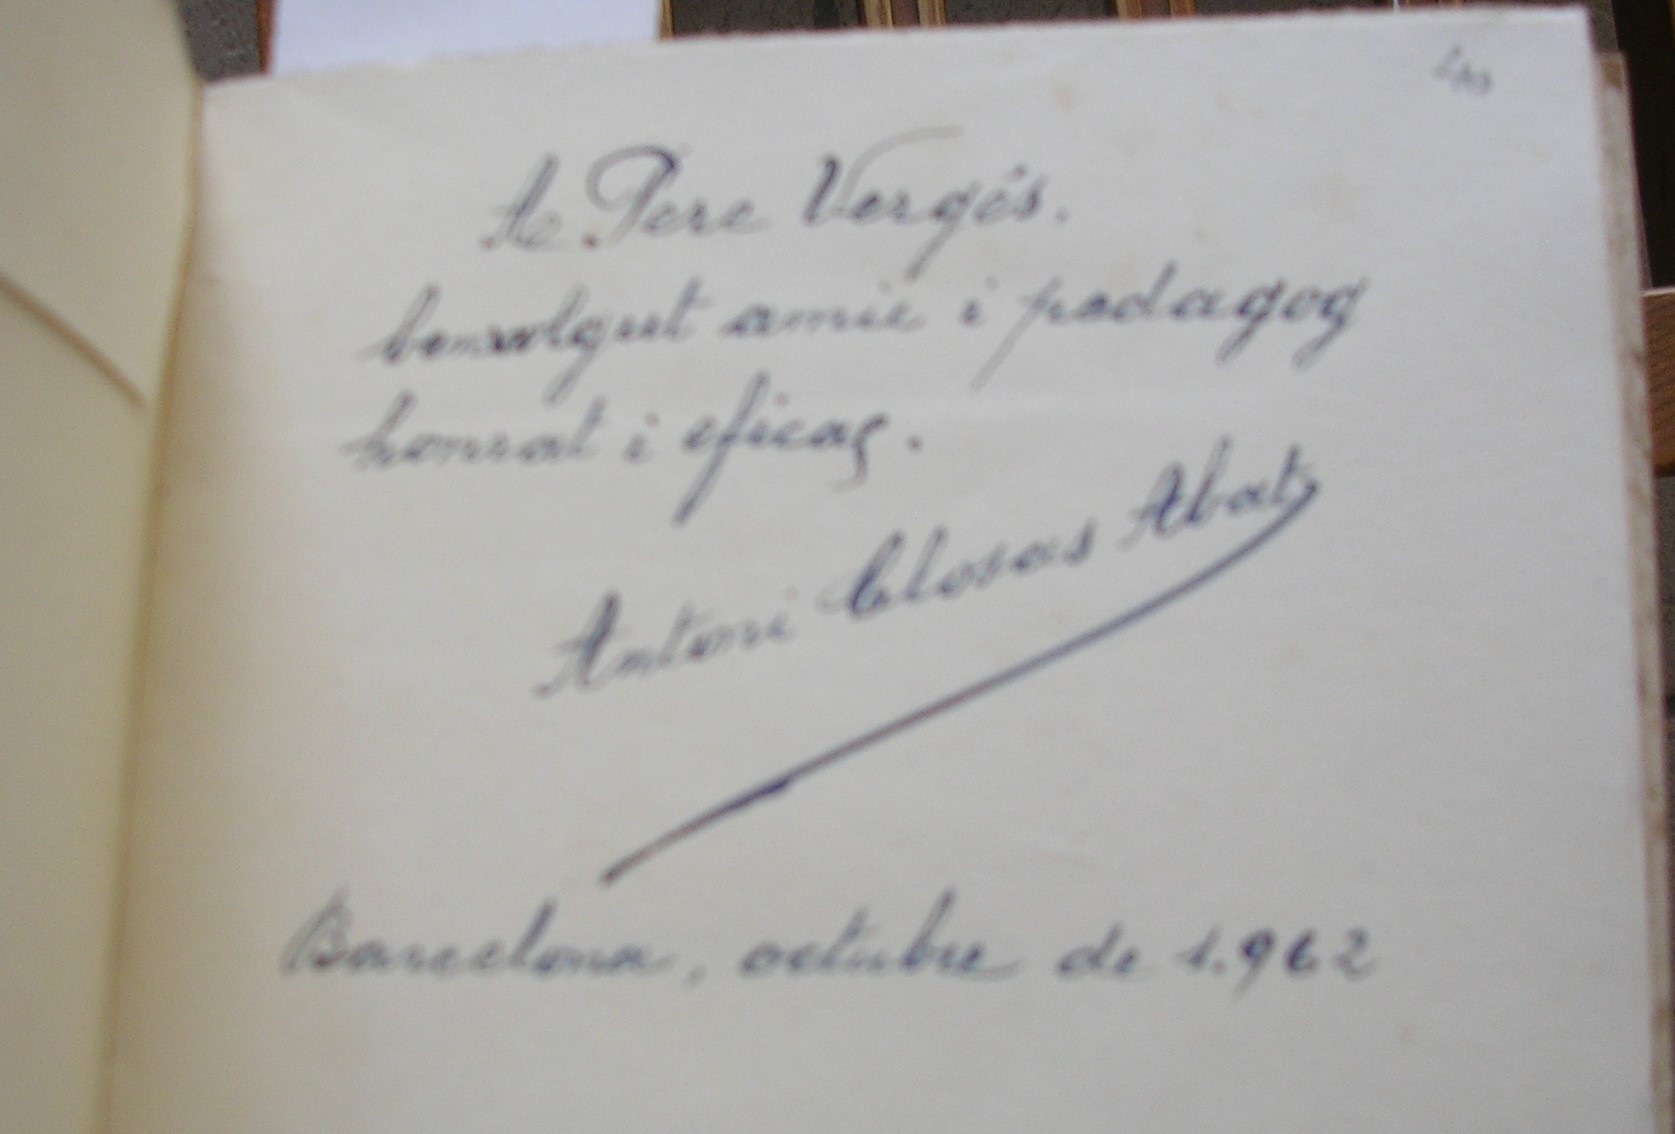 A Pere Vergés.
benvolgut amic i pedagog
honrat i eficaç.
Antoni Closas Abat
Barcelona, octubre de 1.962